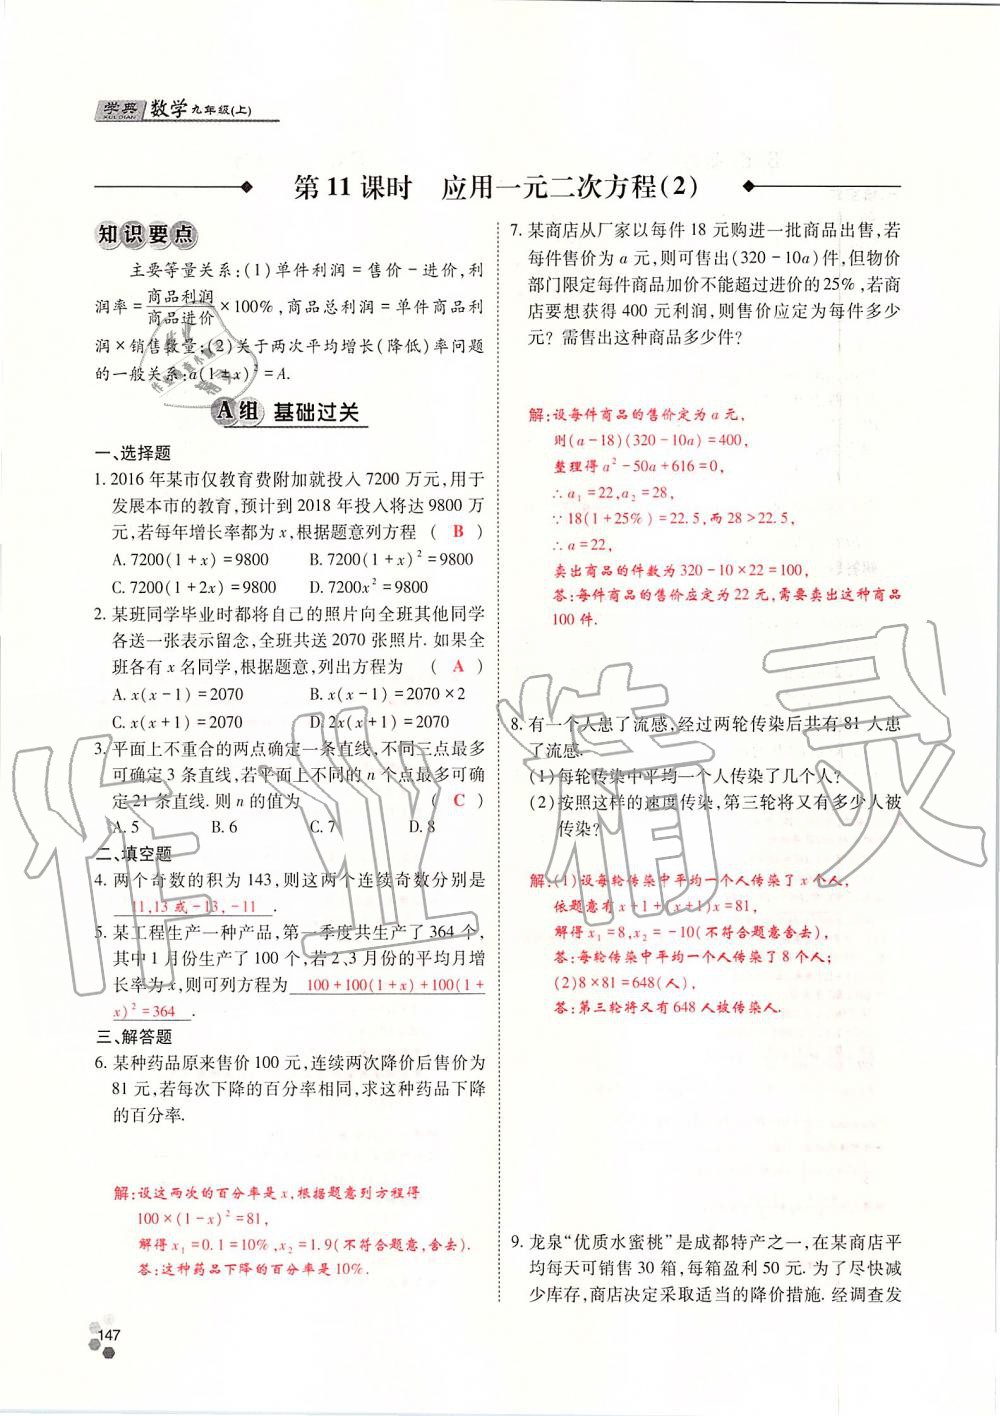 学典 数学九年级(上)
XUEDIAN
第11课时 应用一元二次方程(2)
知识要点
主要等量关系:(1)单件利润=售价-进价,利
润率=商品利润/商品进价×100%,商品总利润=单件商品利
润×销售数量;(2)关于两次平均增长(降低)率问题
的一般关系:a(1±x)²=A.
A组 基础过关
一、选择题
1. 2016年某市仅教育费附加就投入7200万元,用于
发展本市的教育,预计到2018年投入将达9800万
元,若每年增长率都为x,根据题意列方程 ( B )
A. 7200(1+x)=9800 B. 7200(1+x)²=9800
C. 7200(1+2x)=9800 D. 7200x²=9800
2. 某班同学毕业时都将自己的照片向全班其他同学
各送一张表示留念,全班共送2070张照片. 如果全
班各有x名同学,根据题意,列出方程为 ( A )
A. x(x-1)=2070 B. x(x-1)=2070×2
C. x(x+1)=2070 D. 2x(x+1)=2070
3. 平面上不重合的两点确定一条直线,不同三点最多
可确定3条直线,若平面上不同的n个点最多可确
定21条直线. 则n的值为 ( C )
A. 5 B. 6 C. 7 D. 8
二、填空题
4. 两个奇数的积为143,则这两个连续奇数分别是
11,13或-13,-11 .
5. 某工程生产一种产品,第一季度共生产了364个,
其中1月份生产了100个,若2、3月份的平均月增
长率为x,则可列方程为 100+100(1+x)+100(1+
x)²=364 .
三、解答题
6. 某种药品原来售价100元,连续两次降价后售价为
81元,若每次下降的百分率相同,求这种药品下降
的百分率.
解:设这两次的百分率是x,根据题意列方程得
100×(1-x)²=81,
解得x₁=0.1=10%,x₂=1.9(不符合题意,舍去).
答:这种药品下降的百分率是10%.
147
7. 某商店从厂家以每件18元购进一批商品出售,若
每件售价为a元,则可售出(320-10a)件,但物价
部门限定每件商品加价不能超过进价的25%,若商
店要想获得400元利润,则售价应定为每件多少
元? 需售出这种商品多少件?
解:设每件商品的售价定为a元,
则(a-18)(320-10a)=400,
整理得a²-50a+616=0,
∴a₁=22,a₂=28,
∵18(1+25%)=22.5,而28>22.5,
∴a=22,
卖出商品的件数为320-10×22=100,
答:每件商品的售价应定为22元,需要卖出这种商品
100件.
8. 有一个人患了流感,经过两轮传染后共有81人患
了流感.
(1)每轮传染中平均一个人传染了几个人?
(2)按照这样的速度传染,第三轮将又有多少人被
传染?
解:(1)设每轮传染中平均一个人传染了x个人,
依题意有x+1+(x+1)x=81,
解得x₁=8,x₂=-10(不符合题意舍去),
答:每轮传染中平均一个人传染了8个人;
(2)8×81=648(人),
答:第三轮将又有648人被传染人.
9. 龙泉“优质水蜜桃”是成都特产之一,在某商店平
均每天可销售30箱,每箱盈利50元. 为了尽快减
少库存,商店决定采取适当的降价措施. 经调查发
作业精灵